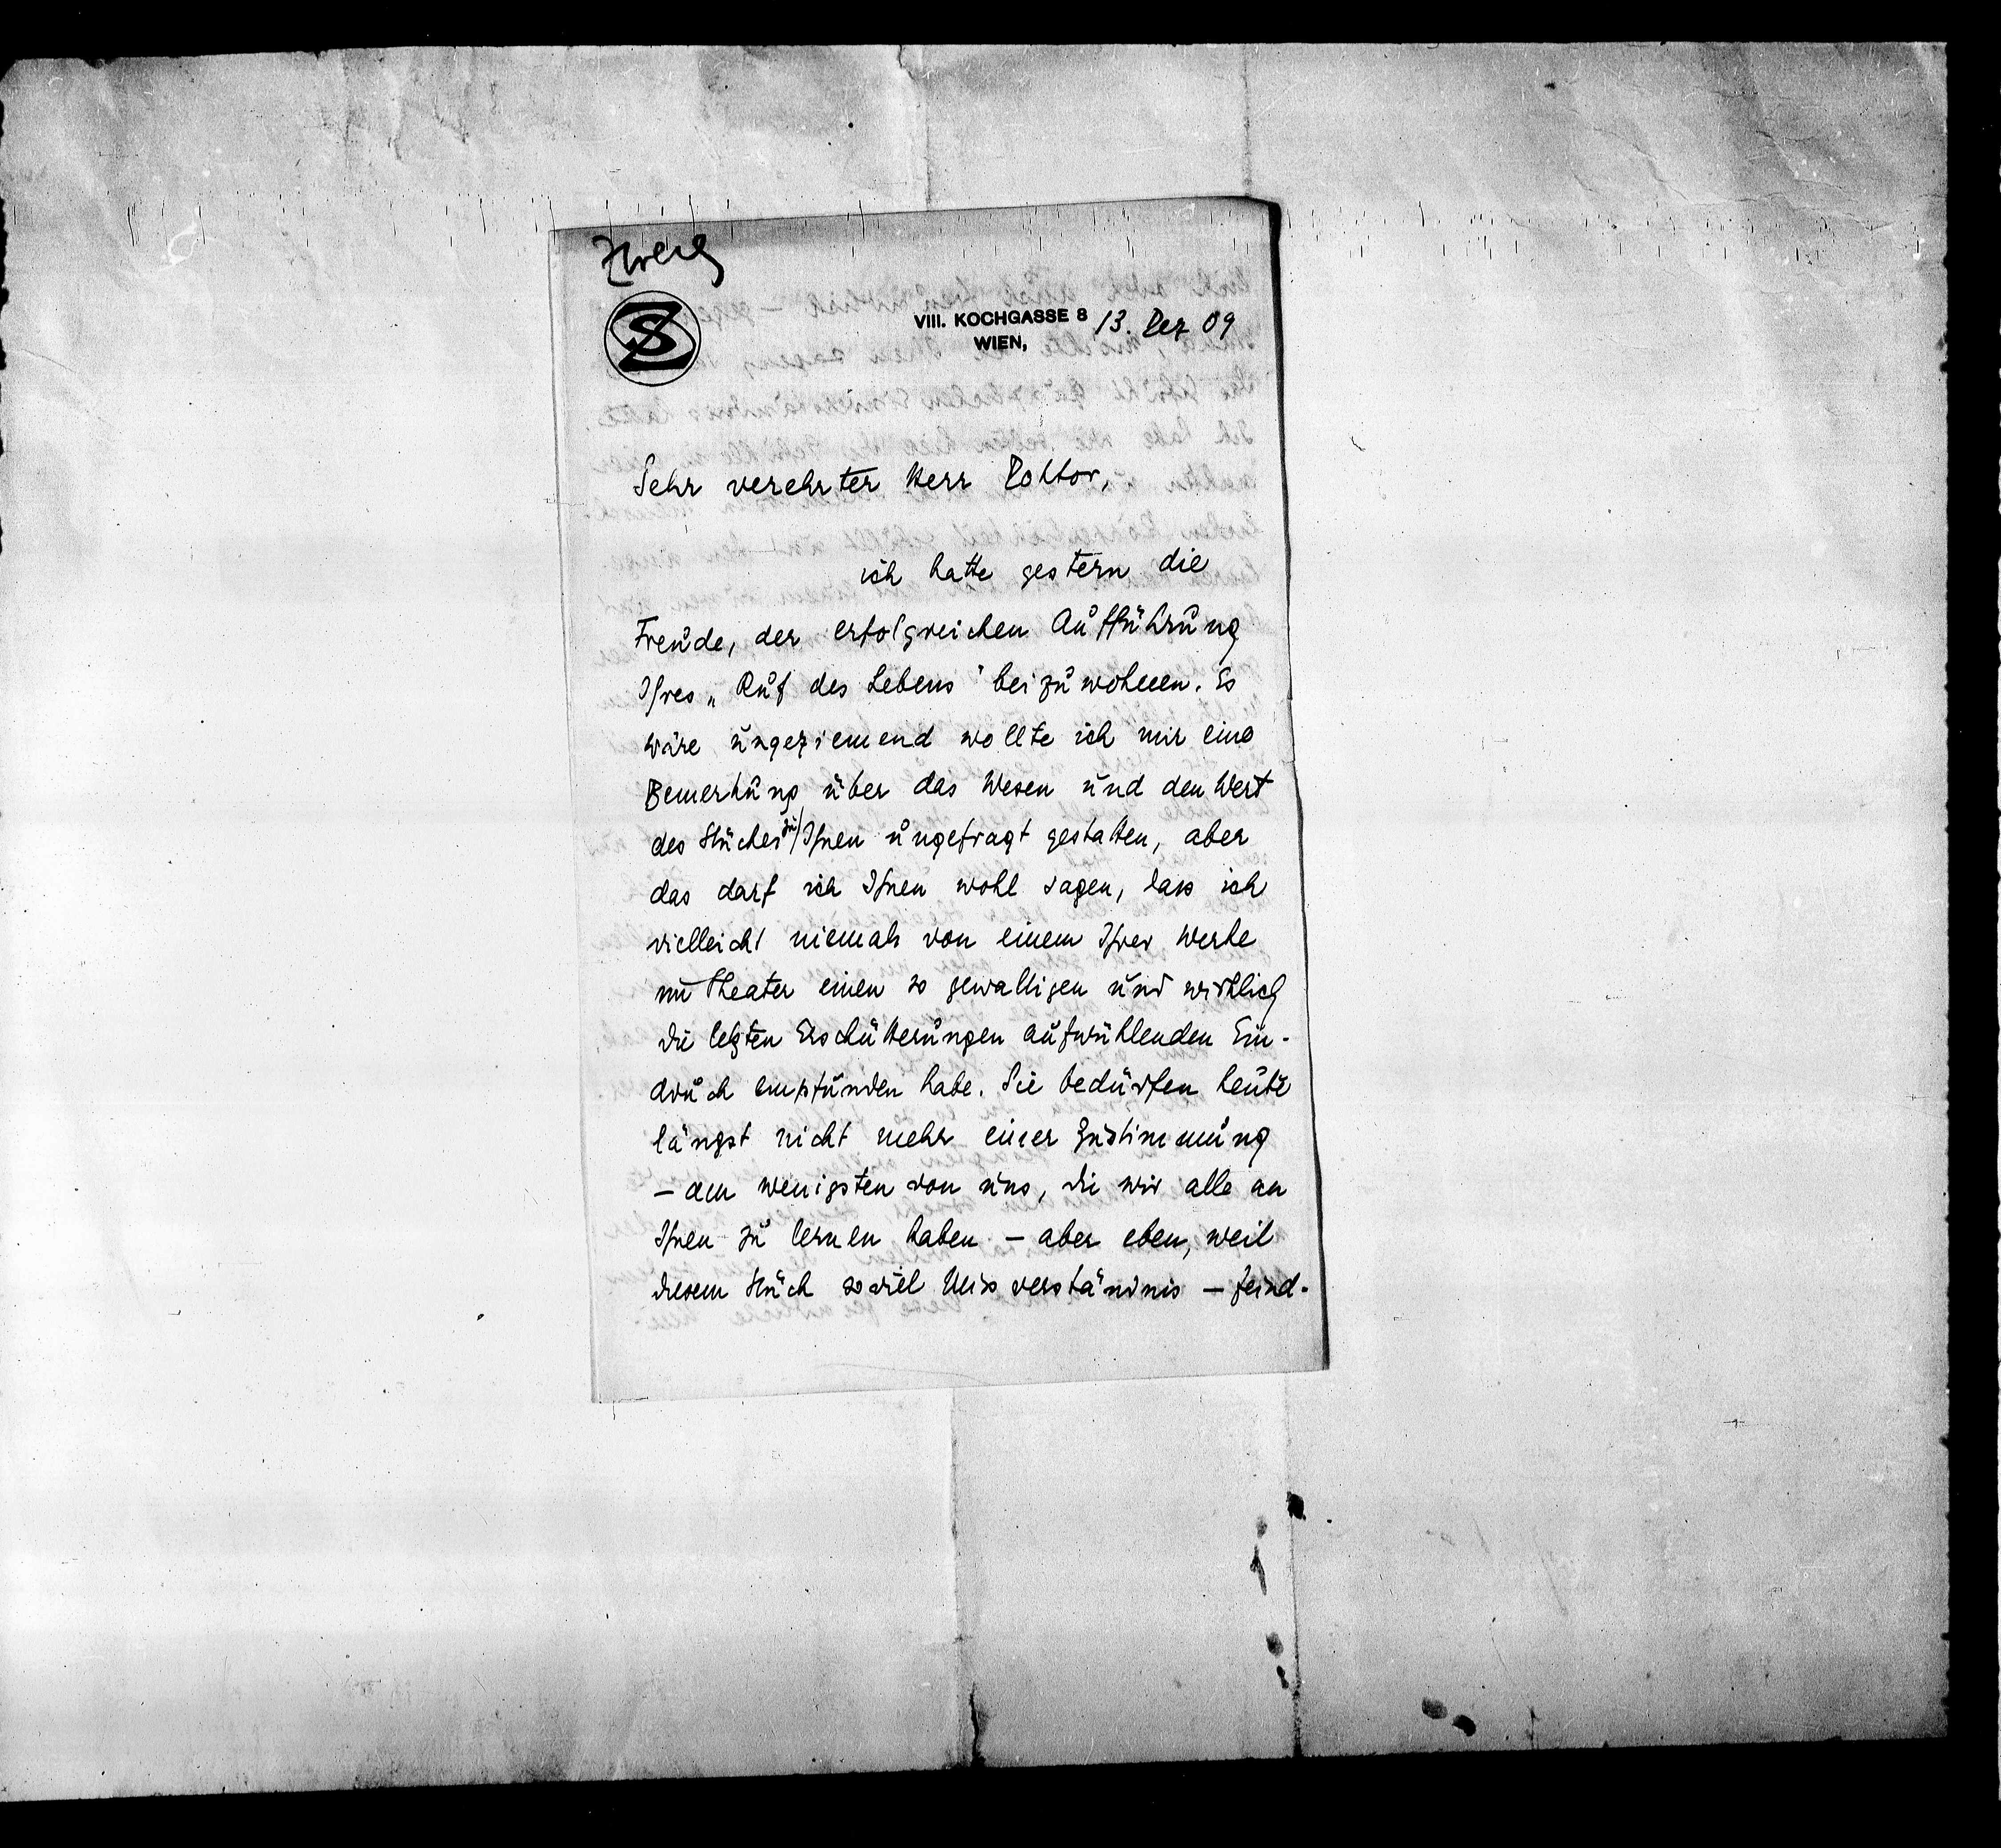 Zweig
SZ
VIII. KOCHGASSE 8 13. Dez 09
WIEN,
Sehr verehrter Herr Doktor,
ich hatte gestern die
Freude, der erfolgreichen Aufführung
Ihres „Ruf des Lebens" beizuwohnen. Es
wäre ungeziemend wollte ich mir eine
Bemerkung über das Wesen und den Wert
des Stückes zu Ihnen ungefragt gestatten, aber
das darf ich Ihnen wohl sagen, dass ich
vielleicht niemals von einem Ihrer Werke
im Theater einen so gewaltigen und wirklich
die letzten Erschütterungen aufwühlenden Ein-
druck empfunden habe. Sie bedürfen heute
längst nicht mehr einer Zustimmung
– am wenigsten von uns, die wir alle an
Ihnen zu lernen haben – aber eben, weil
diesem Stück soviel Missverständnis – feind-